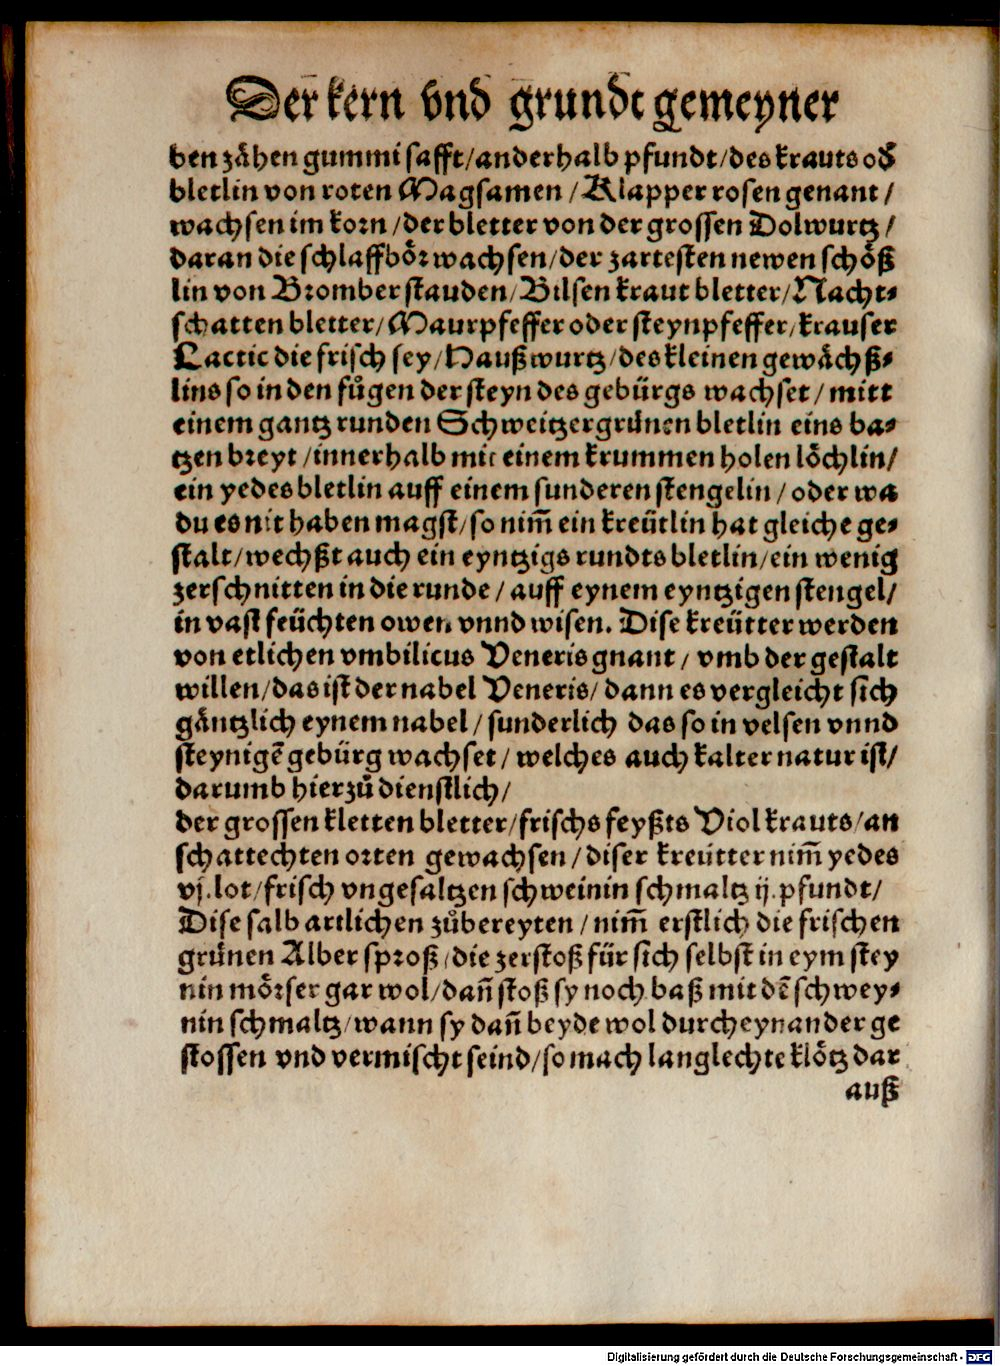 Der kern vnd grundt gemeyner
ben zähen gummi safft/anderhalb pfundt/des krauts oð
bletlin von roten Magsamen/Klapper rosen genant/
wachsen im korn/der bletter von der grossen Dolwurtz/
daran die schlaffbör wachsen/der zartesten newen schöß
lin von Bromber stauden/Bilsen kraut bletter/Nacht⸗
schatten bletter/Maurpfeffer oder steynpfeffer/krauser
Lactic die frisch sey/Haußwurtz/des kleinen gewächß⸗
lins so in den fůgen der steyn des gebürgs wachset/mitt
einem gantz runden Schweitzergrünen bletlin eins ba⸗
tzen breyt/innerhalb mit einem krummen holen löchlin/
ein yedes bletlin auff einem sunderen stengelin/oder wa
du es nit haben magst/so nim̃ ein kreütlin hat gleiche ge⸗
stalt/wechßt auch ein eyntzigs rundts bletlin/ein wenig
zerschnitten in die runde/auff eynem eyntzigen stengel/
in vast feüchten owen vnnd wisen. Dise kreütter werden
von etlichen vmbilicus Veneris gnant/vmb der gestalt
willen/das ist der nabel Veneris/dann es vergleicht sich
gäntzlich eynem nabel/sunderlich das so in velsen vnnd
steynigẽ gebürg wachset/welches auch kalter natur ist/
darumb hierzů dienstlich/
der grossen kletten bletter/frischs feyßts Violkrauts/an
schattechten orten gewachsen/diser kreütter nim̃ yedes
vj. lot/frisch vngesaltzen schweinin schmaltz ij. pfundt/
Dise salb artlichen zůbereyten/nim̃ erstlich die frischen
grünen Alber sproß/die zerstoß für sich selbst in eym stey
nin mörser gar wol/dañ stoß sy noch baß mit dẽ schwey⸗
nin schmaltz/wann sy dañ beyde wol durcheynander ge
stossen vnd vermischt seind/so mach langlechte klötz dar
auß
Digitalisierung gefördert durch die Deutsche Forschungsgemeinschaft - DFG